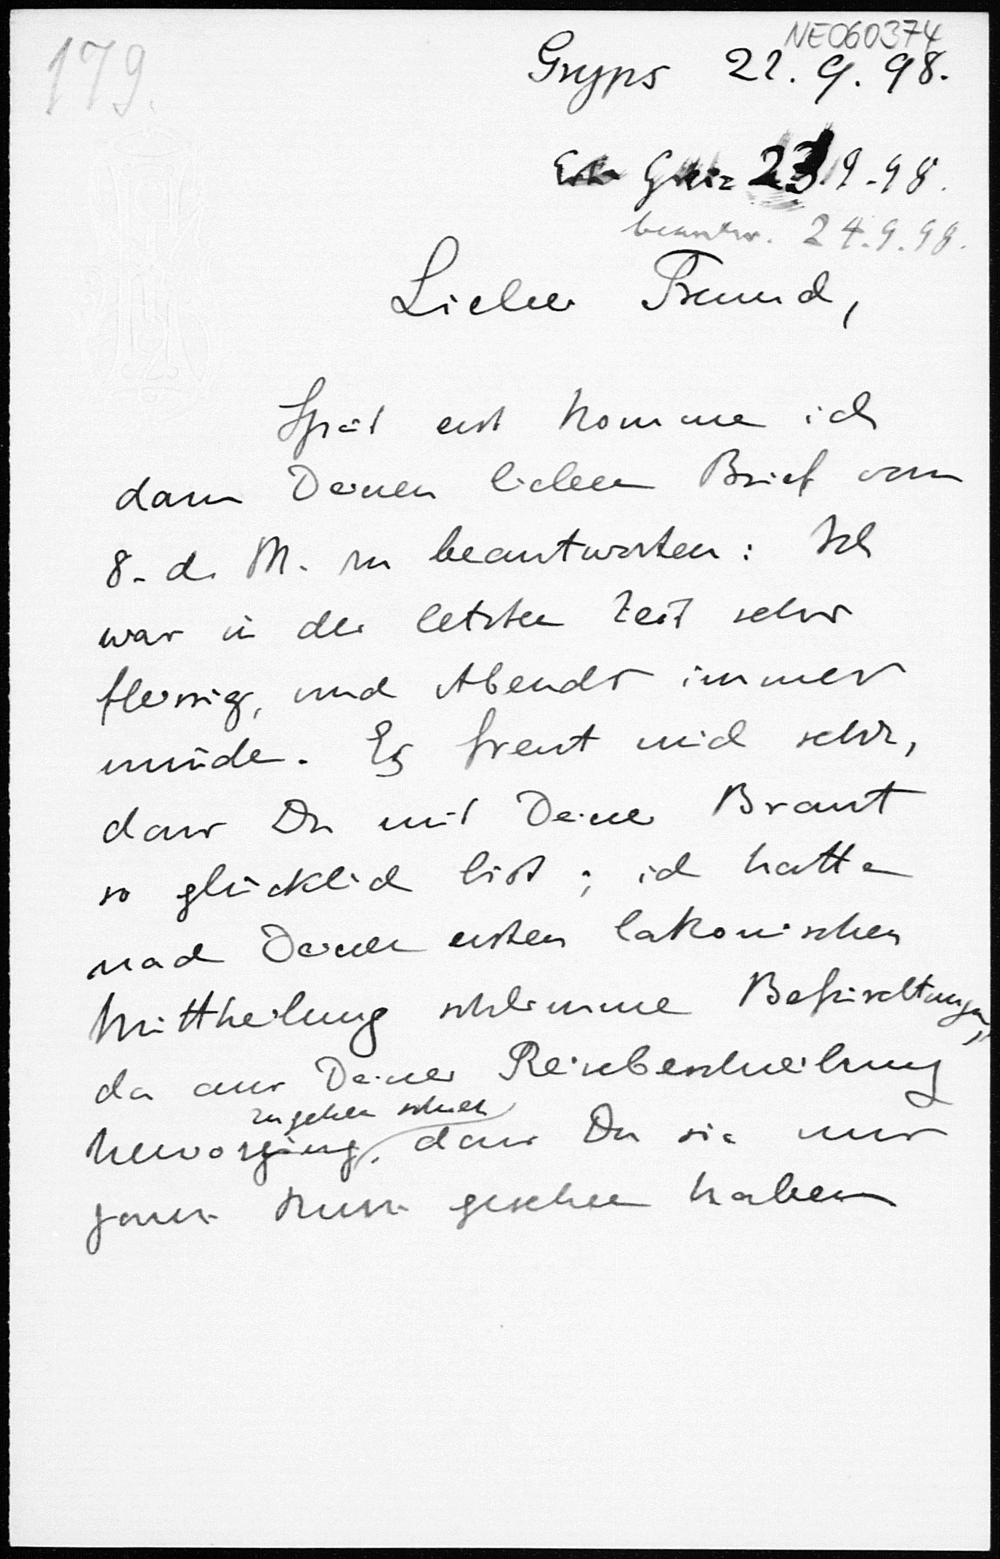 NE060374
179.
Gryps 22. 9. 98.
Erh. Greiz 23.9.98.
beantw. 24.9.98.
Lieber Freund,
Spät erst komme ich
dazu Deinen lieben Brief vom
8. d. M. zu beantworten: Ich
war in der letzten Zeit sehr
fleissig, und Abends immer
müde. Es freut mich sehr,
dass Du mit Deiner Braut
so glücklich bist; ich hatte
nach Deiner ersten lakonischen
Mittheilung schlimme Befürchtungen,
da aus Deiner Reisebeschreibung
zugehen schien
hervorging, dass Du sie nur
ganz kurz gesehen haben